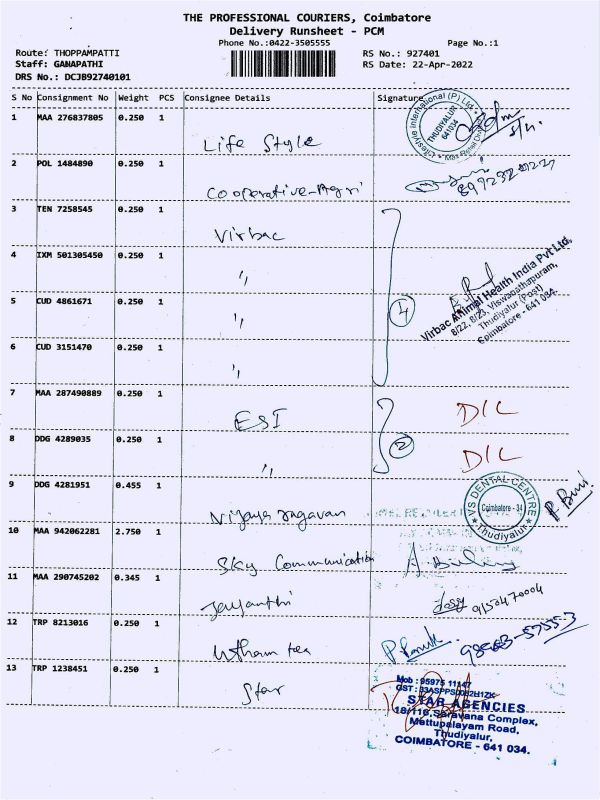 THE PROFESSIONAL COURIERS, Coimbatore
Delivery Runsheet - PCM
Phone No.:0422-3505555 Page No.:1
Route: THOPPAMPATTI RS No.: 927401
Staff: GANAPATHI RS Date: 22-Apr-2022
DRS No.: DCJB92740101
S No Consignment No Weight PCS Consignee Details Signature
1 MAA 276837805 0.250 1 Life Style
Lifestyle International (P) Ltd.
THUDIYALUR
641034
2 POL 1484890 0.250 1 Cooperative-Agri
3 TEN 7258545 0.250 1 Virbac
4 IXM 501305450 0.250 1 "
5 CUD 4861671 0.250 1 "
4
Virbac Animal Health India Pvt Ltd,
8/22, 8/23, Viswanathapuram,
Thudiyalur (Post)
Coimbatore - 641 034.
6 CUD 3151470 0.250 1 "
7 MAA 287490889 0.250 1 ESI D/L
8 DDG 4289035 0.250 1 " 2 D/L
9 DDG 4281951 0.455 1 Vijaya ragavan
VS DENTAL CENTRE
Coimbatore - 34
Thudiyalur
10 MAA 942062281 2.750 1 Sky Communication
11 MAA 290745202 0.345 1 Jayanthi
12 TRP 8213016 0.250 1
13 TRP 1238451 0.250 1 Star
Mob : 95975 11147
STAR AGENCIES
18/116, Saravana Complex,
Mettupalayam Road,
Thudiyalur,
COIMBATORE - 641 034.